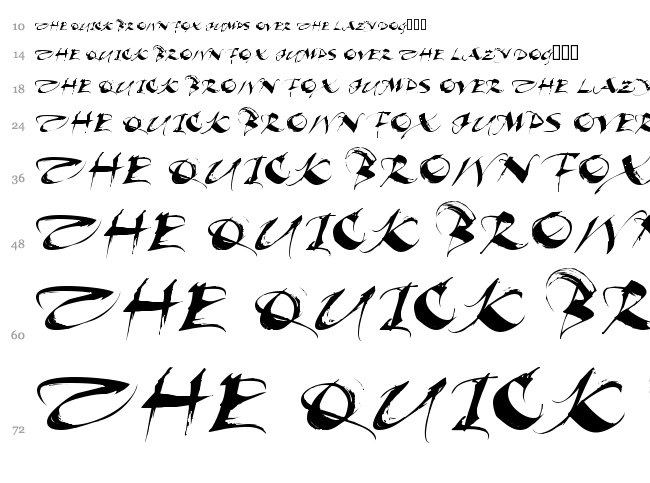 10 THE QUICK BROWN FOX JUMPS OVER THE LAZY DOG
14 THE QUICK BROWN FOX JUMPS OVER THE LAZY DOG
18 THE QUICK BROWN FOX JUMPS OVER THE LAZY
24 THE QUICK BROWN FOX JUMPS OVER
36 THE QUICK BROWN FOX
48 THE QUICK BROWN
60 THE QUICK BR
72 THE QUICK